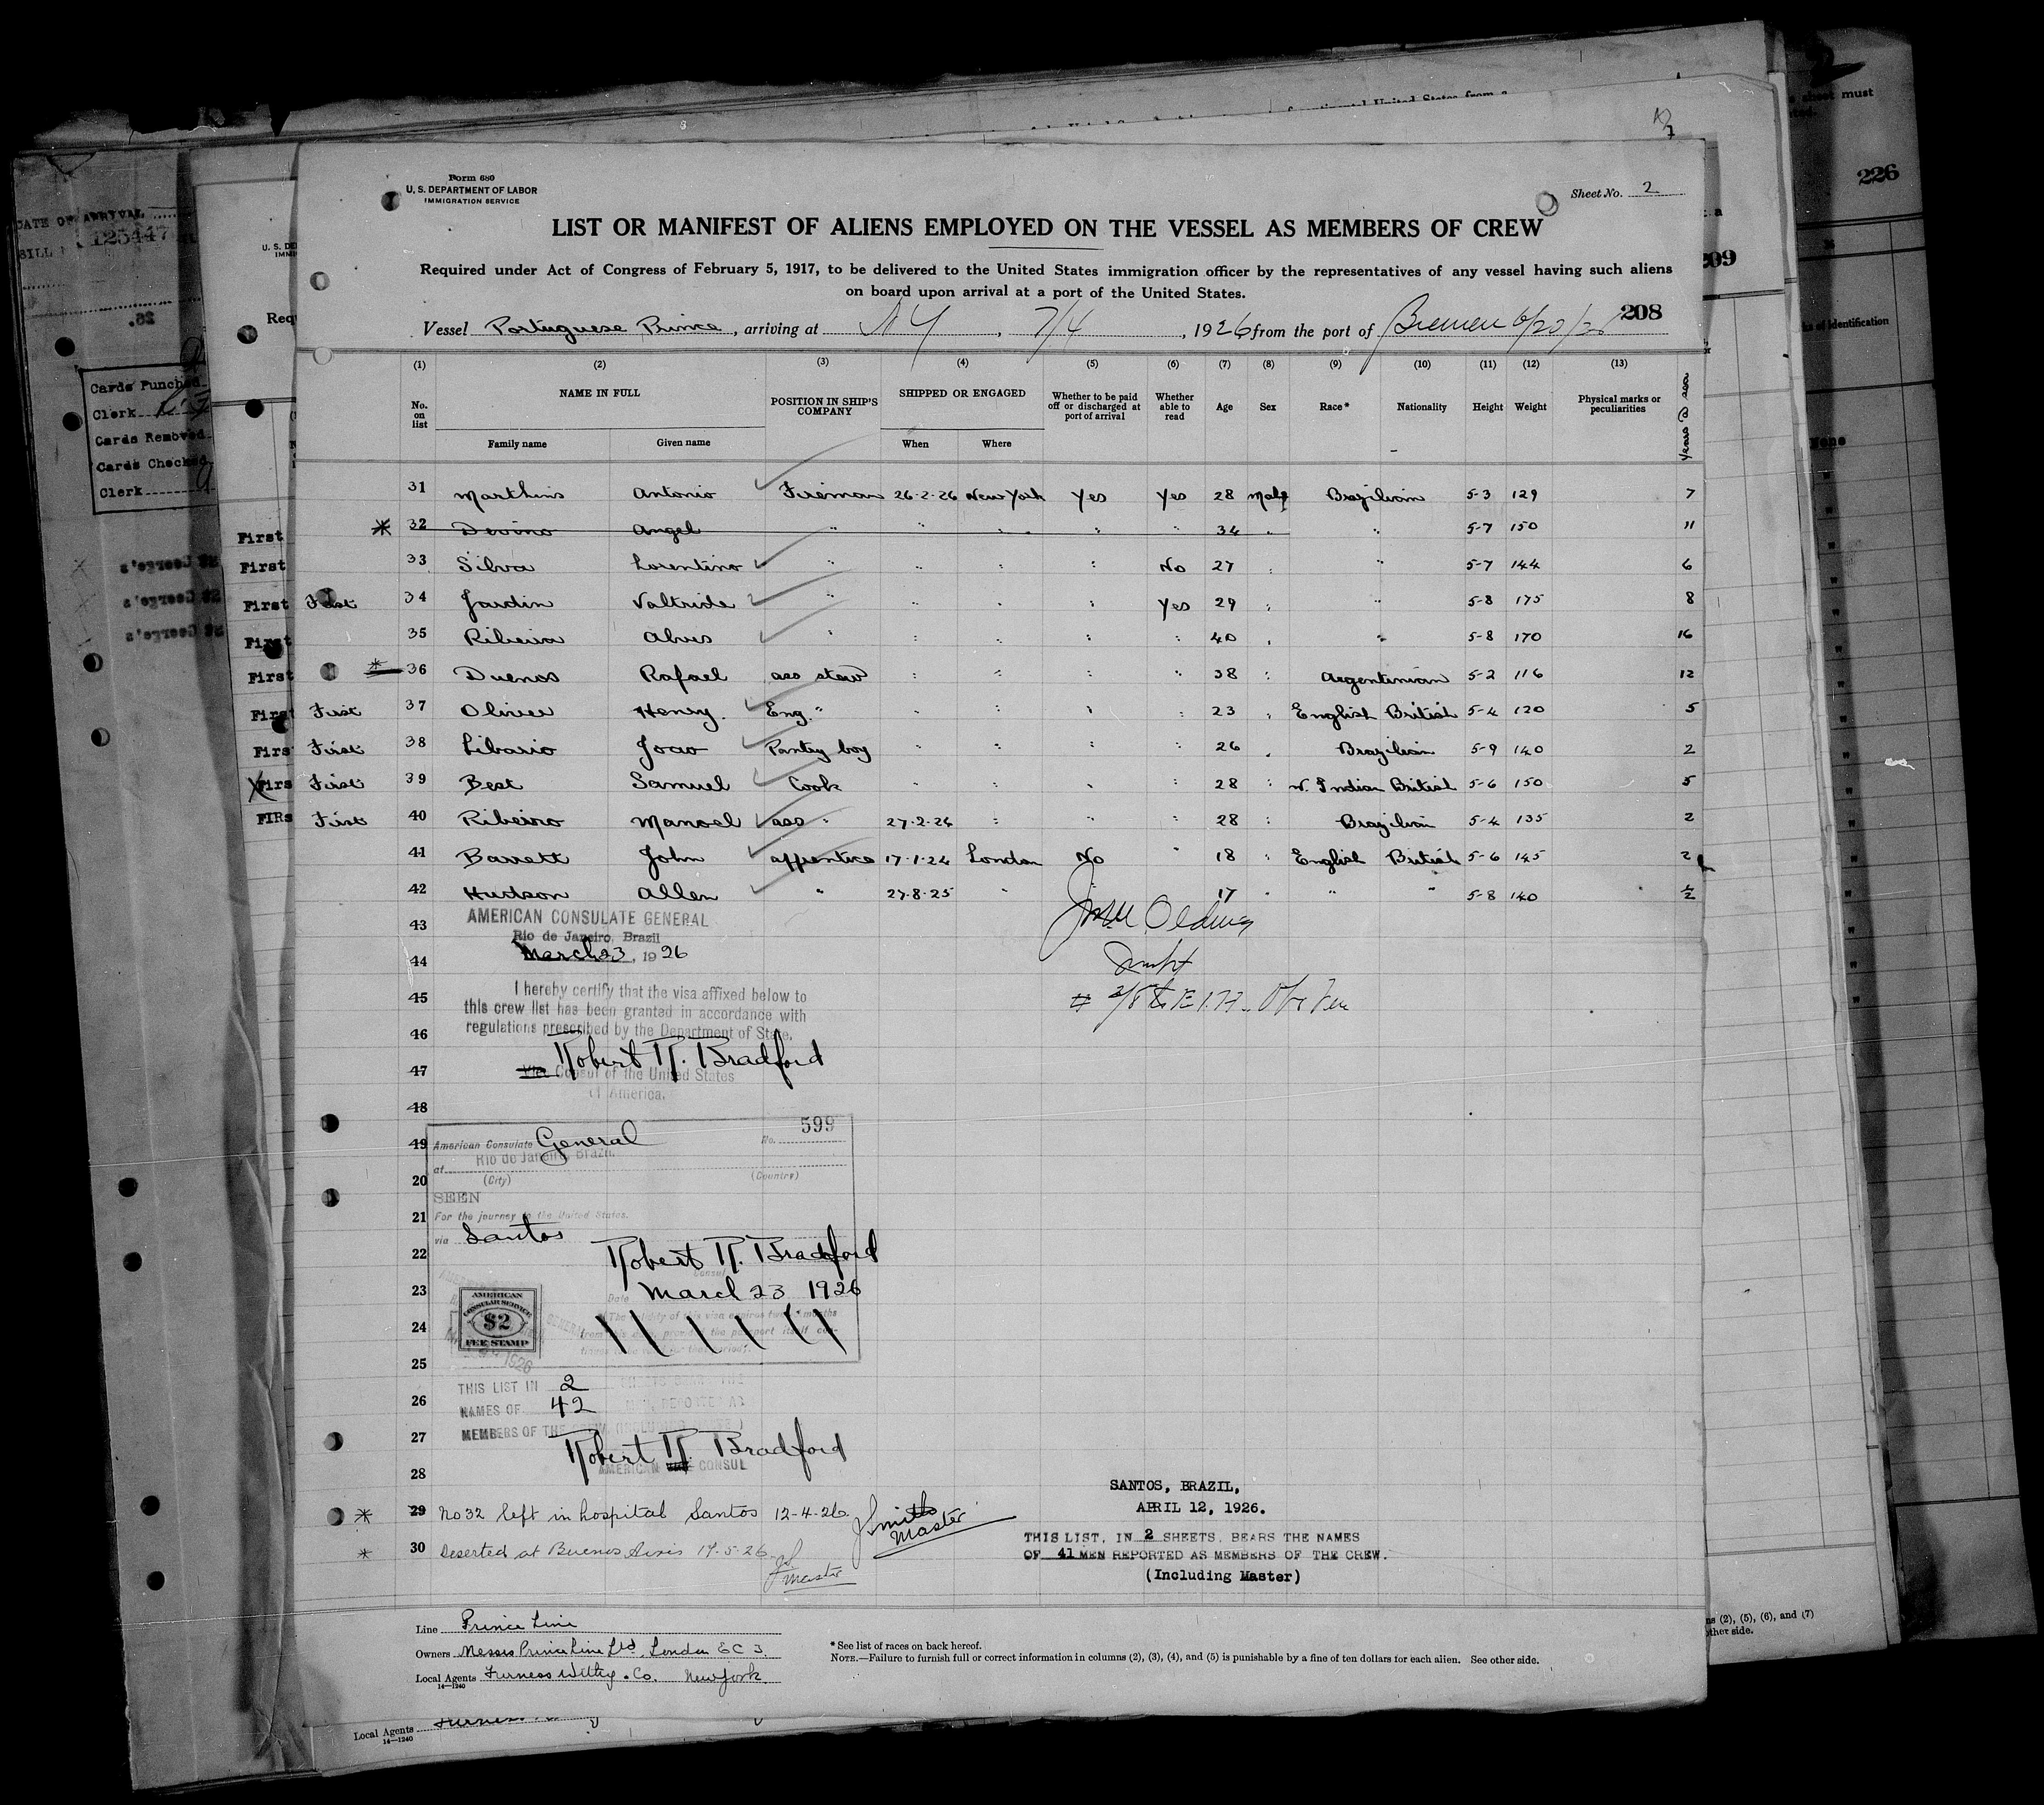 Form 680
U. S. DEPARTMENT OF LABOR
IMMIGRATION SERVICE
Sheet No. 2
LIST OR MANIFEST OF ALIENS EMPLOYED ON THE VESSEL AS MEMBERS OF CREW
Required under Act of Congress of February 5, 1917, to be delivered to the United States immigration officer by the representatives of any vessel having such aliens
on board upon arrival at a port of the United States.
208
Vessel Portuguese Prince, arriving at N Y, 7/4, 1926 from the port of Bremen 6/20/26
(1) (2) (3) (4) (5) (6) (7) (8) (9) (10) (11) (12) (13)
No. on list NAME IN FULL Family name Given name POSITION IN SHIP'S COMPANY SHIPPED OR ENGAGED When Where Whether to be paid off or discharged at port of arrival Whether able to read Age Sex Race* Nationality Height Weight Physical marks or peculiarities Years @ sea
31 Marthins Antonio Fireman 26-2-26 New York Yes Yes 28 Male Brazilian 5-3 129 7
* 32 Devino Angel " " " " " 34 " " 5-7 150 11
33 Silva Lorentino " " " " No 27 " " 5-7 144 6
First 34 Jardin Valtride " " " " Yes 29 " " 5-8 175 8
35 Ribeira Alves " " " " " 40 " " 5-8 170 16
* 36 Duenos Rafael ass stew " " " " 38 " Argentinian 5-2 116 12
First 37 Oliver Henry. Eng. " " " " " 23 " English British 5-4 120 5
First 38 Libario Joao Pantry boy " " " " 26 " Brazilian 5-9 140 2
First 39 Best Samuel Cook " " " " 28 " W. Indian British 5-6 150 5
First 40 Ribeiro Manoel ass " 27-2-26 " " " 28 " Brazilian 5-4 135 2
41 Barrett John apprentice 17-1-24 London No " 18 " English British 5-6 145 2
42 Hudson Allen " 27-8-25 " " 17 " " " 5-8 140 1/2
43
AMERICAN CONSULATE GENERAL
Rio de Janeiro, Brazil
March 23, 1926
44
I hereby certify that the visa affixed below to
45 this crew list has been granted in accordance with
46 regulations prescribed by the Department of State.
Robert R. Bradford
47 Vice Consul of the United States
of America.
48
599
49 American Consulate General No.
at Rio de Janeiro, Brazil.
20 (City) (Country)
SEEN
21 For the journey to the United States.
via Santos
22 Robert R. Bradford
Consul
23 Date March 23 1926
AMERICAN
CONSULAR SERVICE
$2
FEE STAMP
24
25
THIS LIST IN 2
26 NAMES OF 42
27 MEMBERS OF THE CREW
Robert R. Bradford
28 AMERICAN VICE CONSUL
* 29 No 32 left in hospital Santos 12-4-26. J Smith Master
* 30 Deserted at Buenos Aires 17-5-26 JS Master
SANTOS, BRAZIL,
APRIL 12, 1926.
THIS LIST, IN 2 SHEETS, BEARS THE NAMES
OF 41 MEN REPORTED AS MEMBERS OF THE CREW.
(Including Master)
Line Prince Line
Owners Messrs Prince Line Ltd. London E C 3.
Local Agents Furness Withy & Co. New York.
14—1240
* See list of races on back hereof.
NOTE.—Failure to furnish full or correct information in columns (2), (3), (4), and (5) is punishable by a fine of ten dollars for each alien. See other side.
Local Agents
14—1240
DATE OF ARRIVAL
125447
Cards Punched
Clerk
Cards Removed
Cards Checked
Clerk
First
First
First
First
First
First
First
FIRs
209
226
None
ns (2), (5), (6), and (7)
other side.